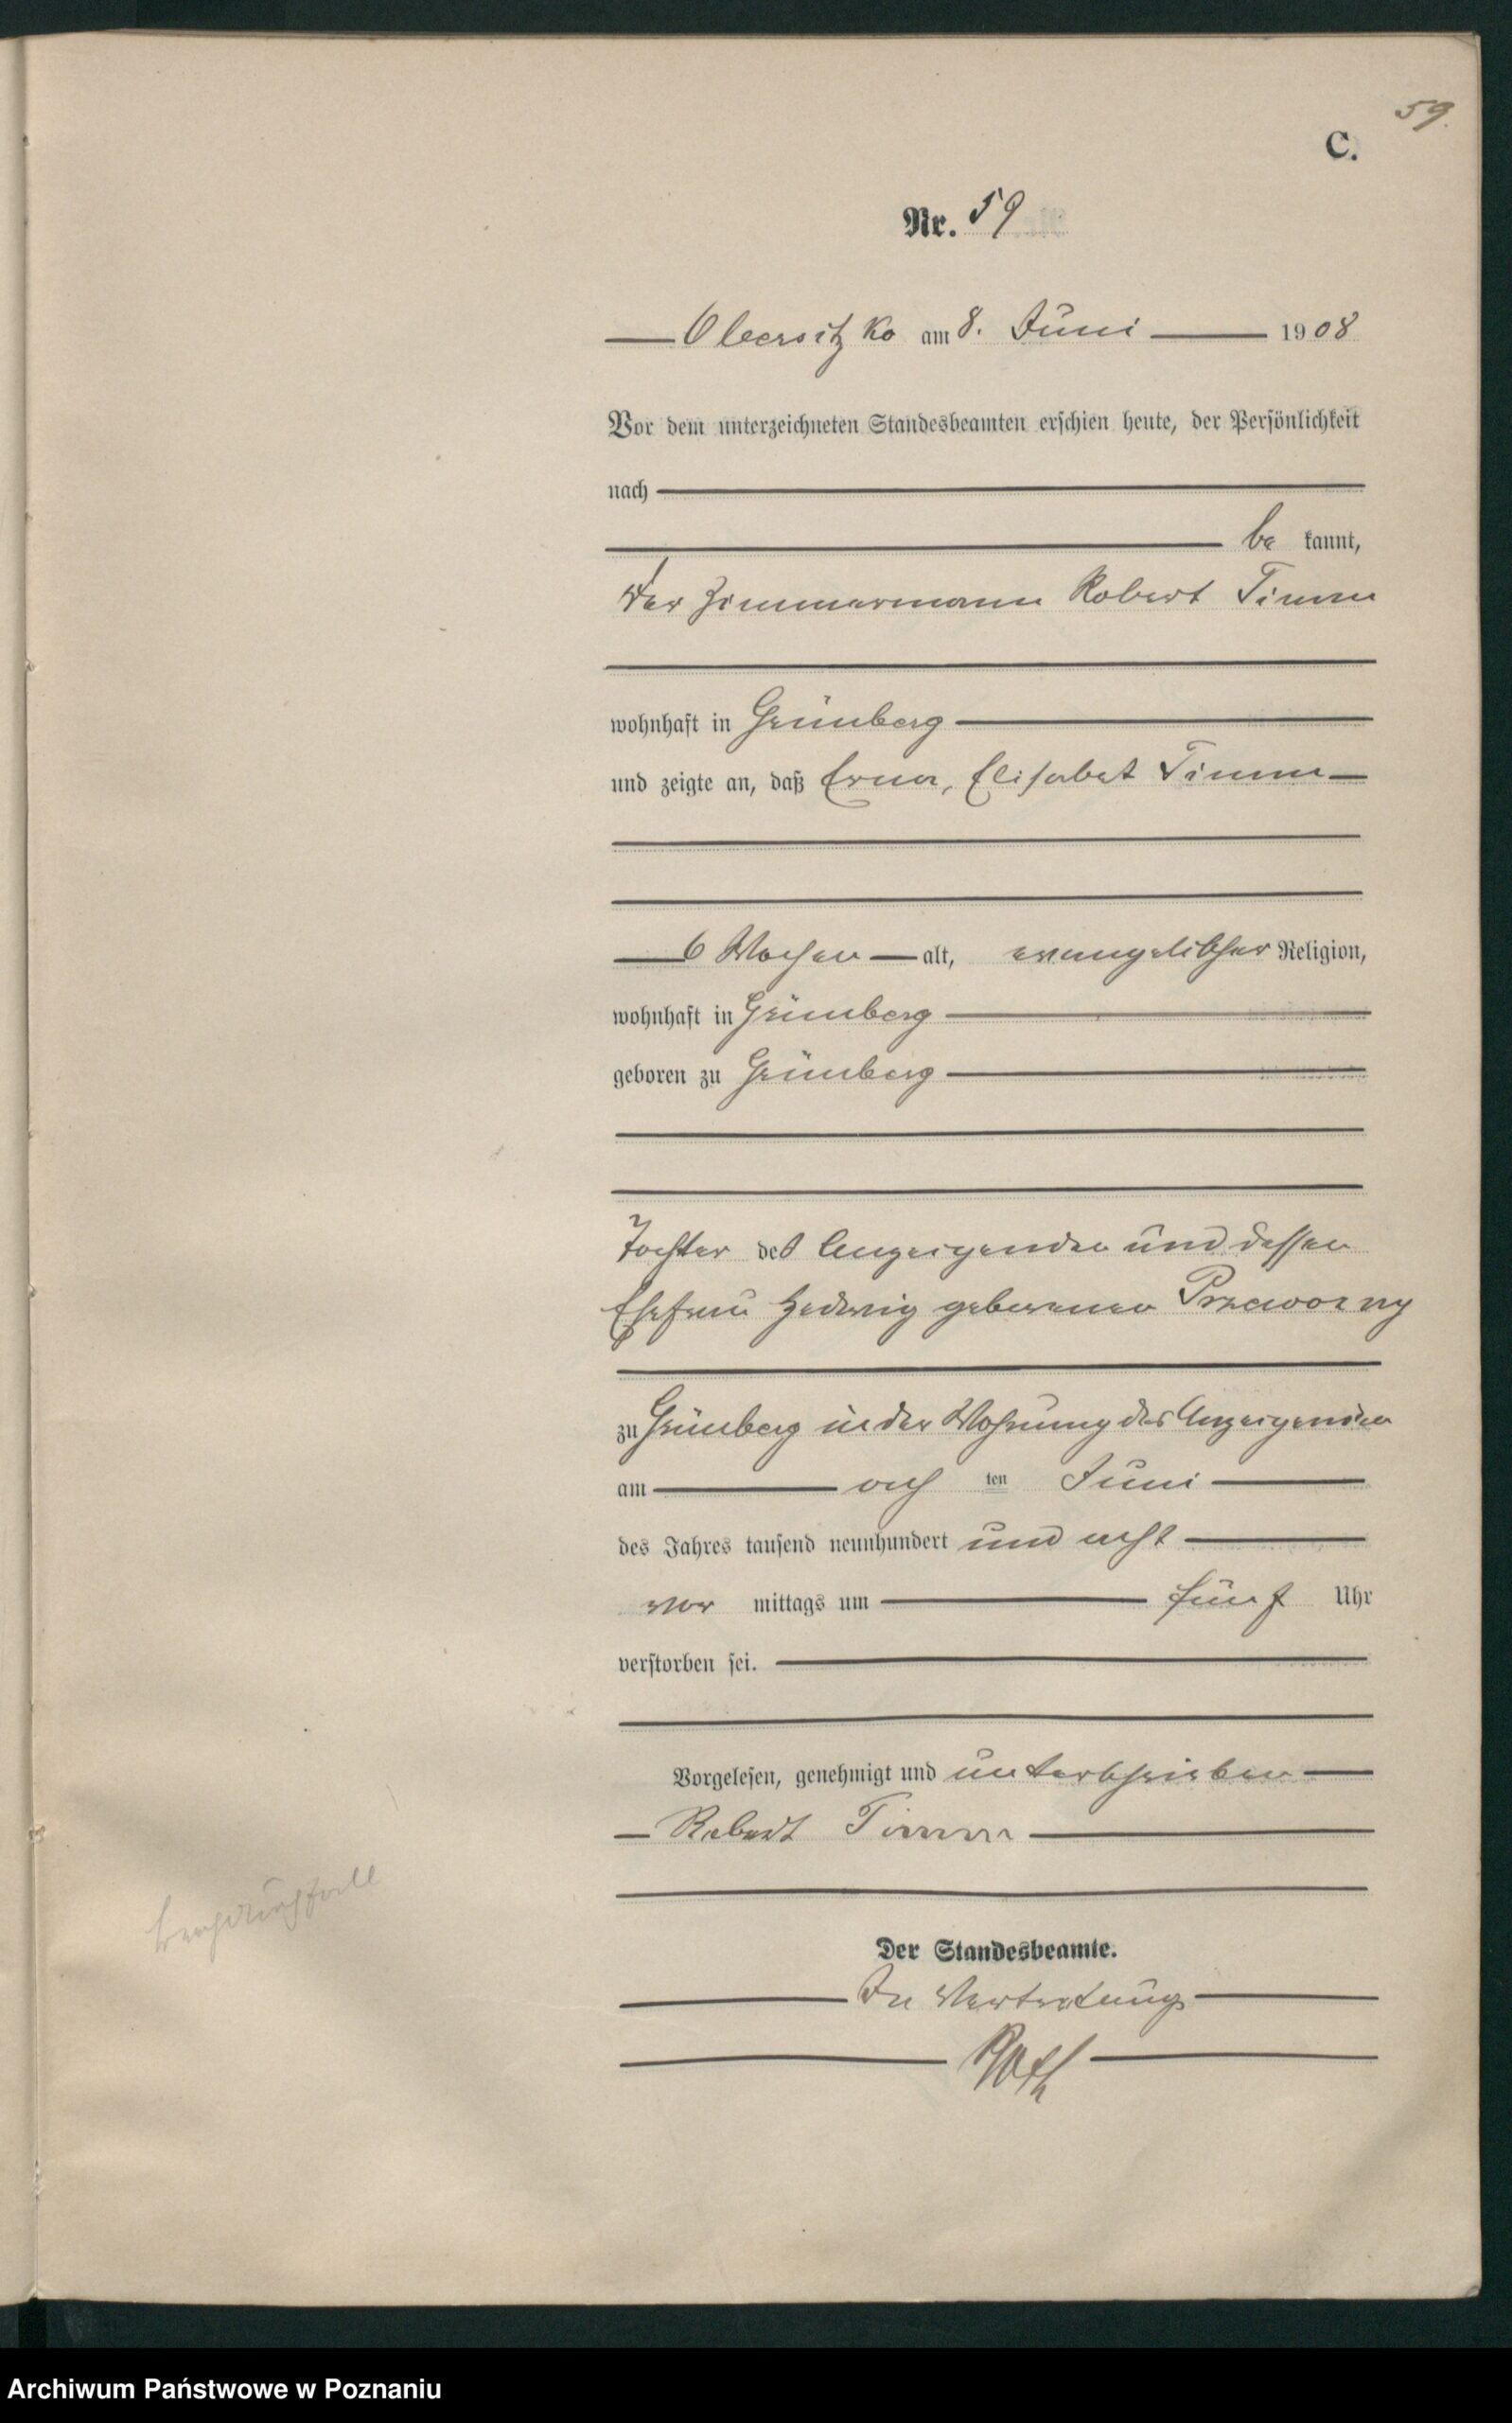 59.
C.
Nr. 59
Obersitzko am 8. Juni 1908
Vor dem unterzeichneten Standesbeamten erschien heute, der Persönlichkeit
nach
be kannt,
der Zimmermann Robert Timm
wohnhaft in Grünberg
und zeigte an, daß Erna, Elisabet Timm
6 Wochen alt, evangelischer Religion,
wohnhaft in Grünberg
geboren zu Grünberg
Tochter des Anzeigenden und dessen
Ehefrau Hedwig geborenen Przewozny
zu Grünberg in der Wohnung des Anzeigenden
am ach ten Juni
des Jahres tausend neunhundert und acht
vor mittags um fünf Uhr
verstorben sei.
Vorgelesen, genehmigt und unterschrieben
Robert Timm
Brechdurchfall
Der Standesbeamte.
In Vertretung
Roth
Archiwum Państwowe w Poznaniu